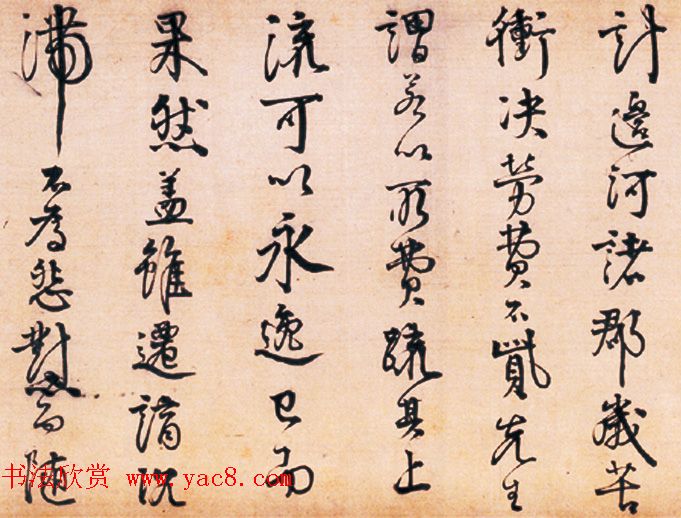 計邊河諸郡歲苦
衝决勞費不貲先生
謂若以所費疏其上
流可以永逸已而
果然盖雖遷謫沉
滯不為懟而随
书法欣赏 www.yac8.com